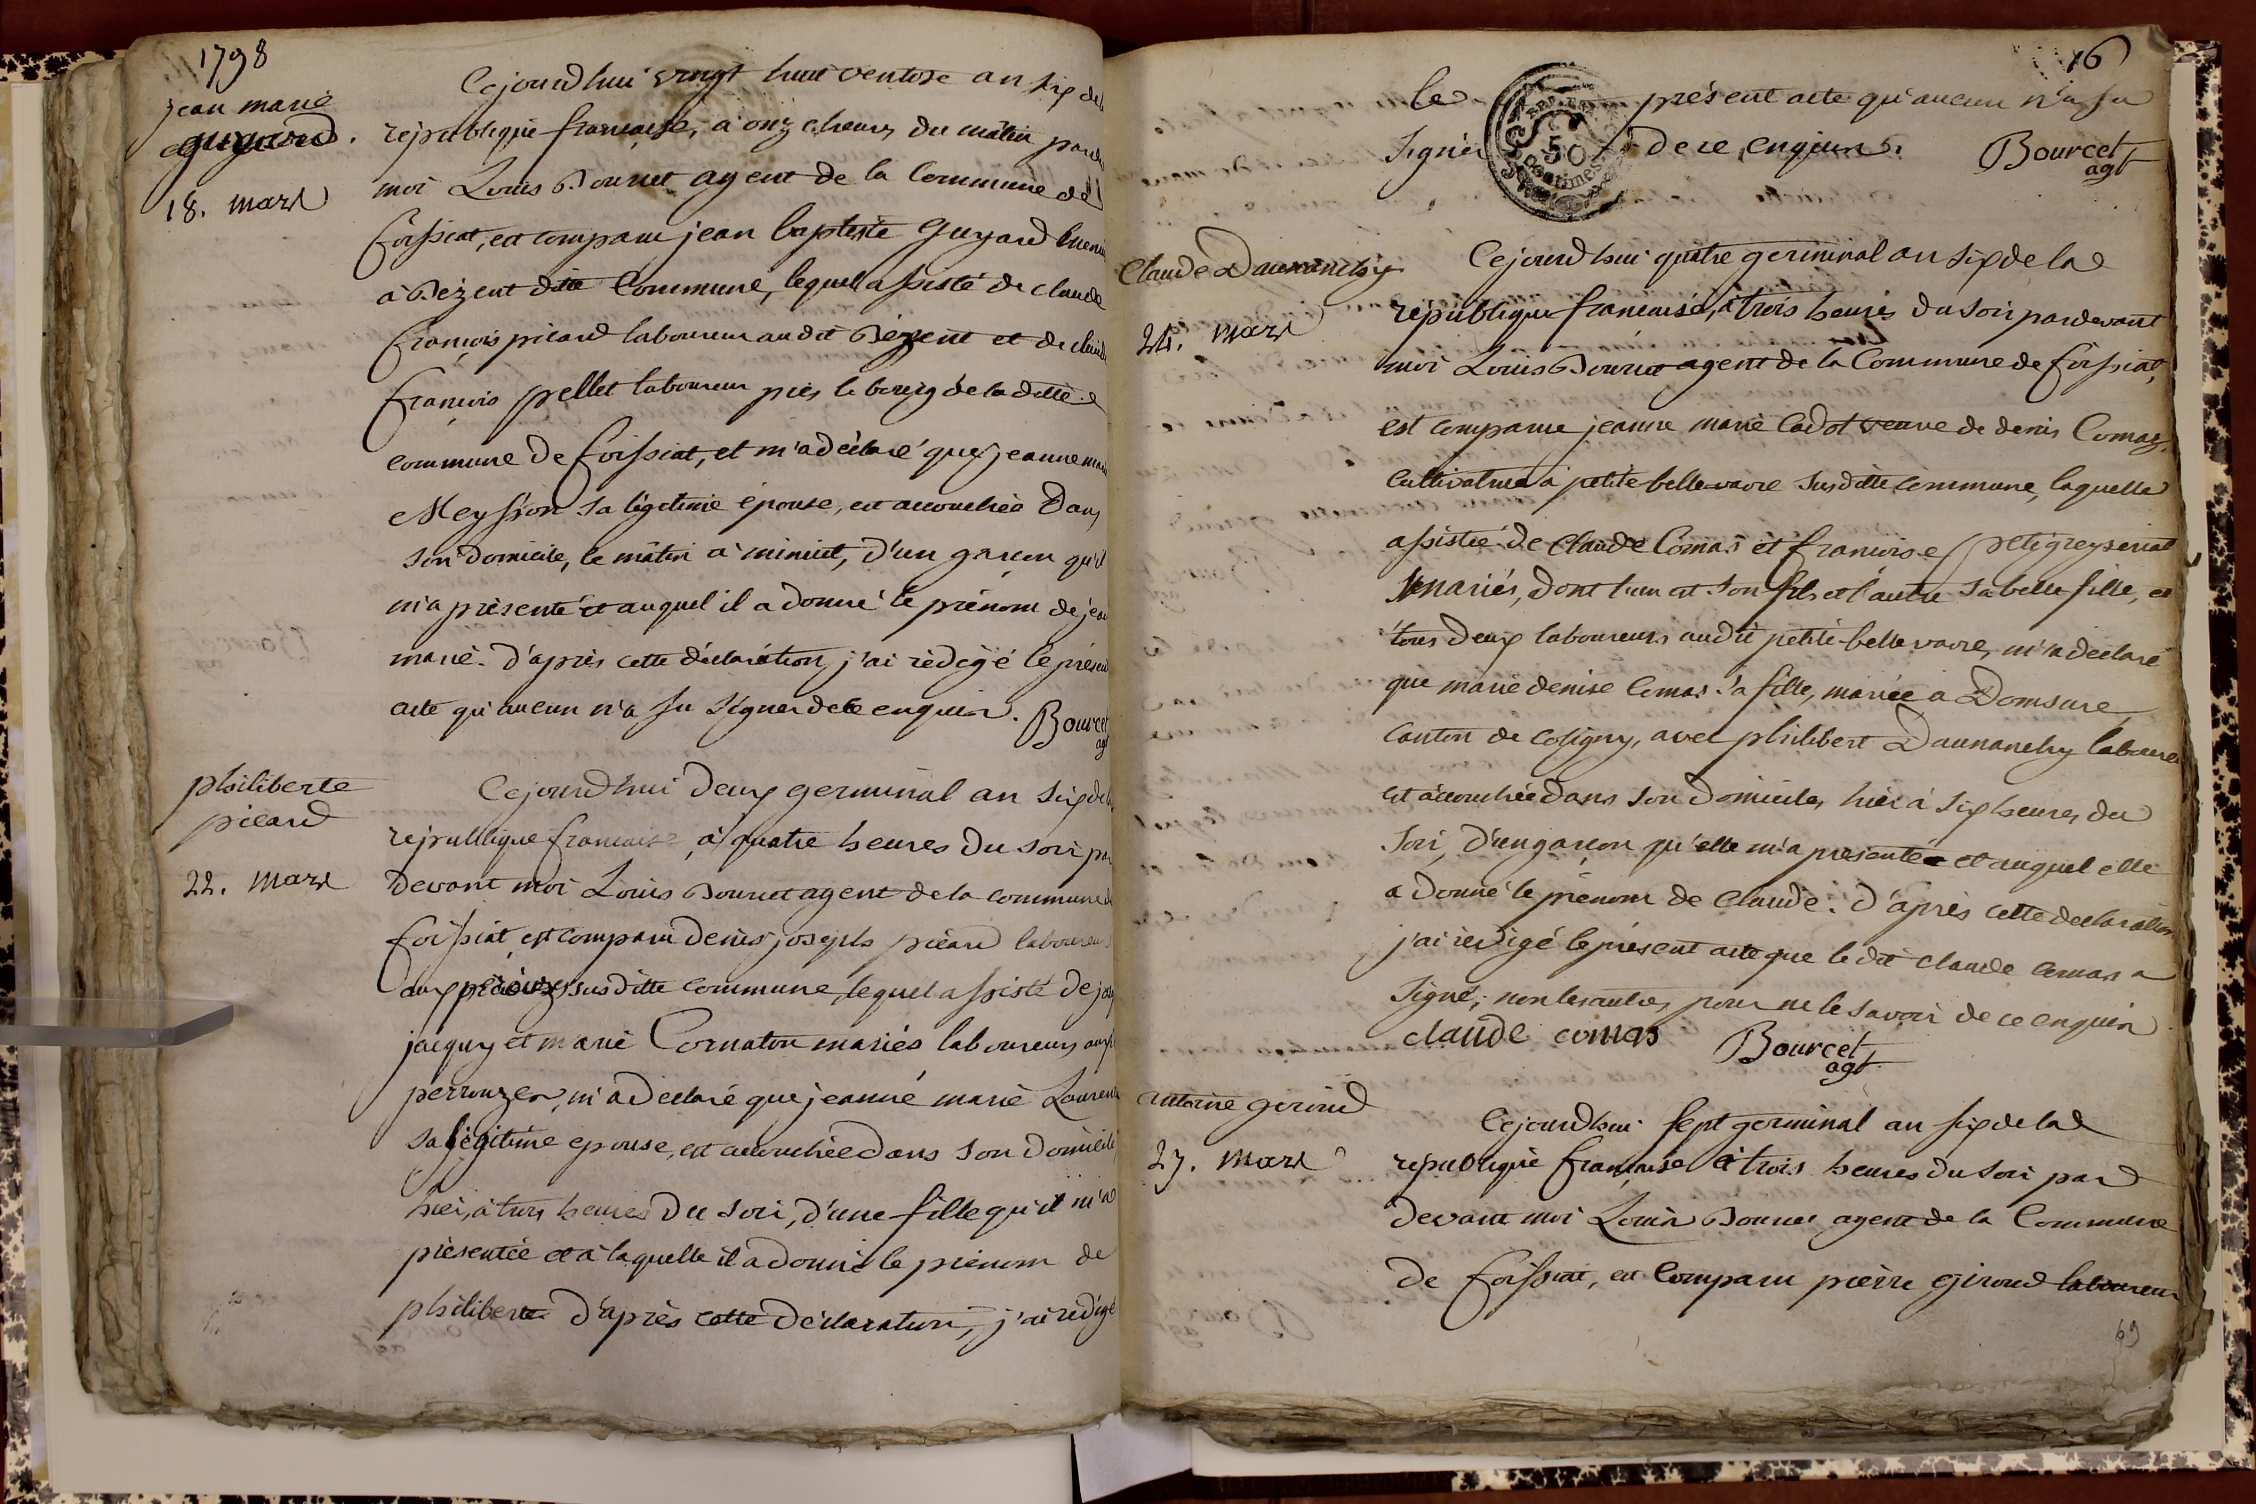 1798
jean marie
guyard.
18. mars
Cejourdhui vingt huit ventose an six de la
republique francaise, à onze heures du matin par de
moi Louis Bourcet agent de la Commune de
foissiat, est comparu jean baptiste Guyard
à Bézent ditte Commune, lequel assisté de claude
françois picard laboureur audit Bézent et de claude
françois pellet laboureur près le bourg de la ditte
commune de foissiat, et m'a déclaré que jeanne marie
Meyssion sa légitime épouse, est accouchée dans
son domicile, le matin à minuit, d'un garcon qu'il
m'a présenté et auquel il a donné le prénom de jean
marie. d'après cette déclaration, j'ai rédigé le présent
acte qu'aucun n'a su signer de ce enquis. Bourcet
agt
philiberte
picard
22. mars
Cejourdhui deux germinal an six de la
republique francaise, à quatre heures du soir par
devant moi Louis Bourcet agent de la commune de
foissiat, est comparu denis joseph picard laboureur
aux susditte commune, lequel assisté de
jacquy et marie Cornaton mariés laboureurs aux
perrouzes, m'a déclaré que jeanne marie Laurent
sa légitime epouse, est accouchée dans son domicile
hier, à trois heures du soir, d'une fille qu'il m'a
présentée et à laquelle il a donné le prénom de
philiberte d'après cette déclaration, j'ai rédigé
76
le présent acte qu'aucun n'a su
signer de ce enquis. Bourcet
agt
50
Centimes
Claude Daunanchy
24. mars
Cejourdhui quatre germinal an six de la
république francaise, à trois heures du soir pardevant
moi Louis Bourcet agent de la Commune de foissiat,
est comparue jeanne marie Cadot veuve de denis Comas
cultivatrice à petite bellevavre susditte commune, laquelle
assistée de Claude Comas et francoise
mariés, dont l'un est son fils et l'autre sa belle fille, et
tous deux laboureurs audit petite bellevavre, m'a déclaré
que marie denise Comas sa fille, mariée à Domsure
canton de Coligny, avec philibert Daunanchy laboureur
est accouchée dans son domicile, hier à six heures du
soir, d'un garcon qu'elle m'a presenté et auquel elle
a donné le prénom de Claude. d'après cette declaration
j'ai redigé le présent acte que le dit claude Comas a
signé, non les autres pour ne le savoir de ce enquis
claude comas Bourcet
agt.
antoine giroud
27. mars
Cejourdhui sept germinal an six de la
republique francaise à trois heures du soir par
devant moi Louis Bourcet agent de la Commune
de foissiat, est comparu pierre giroud laboureur
69